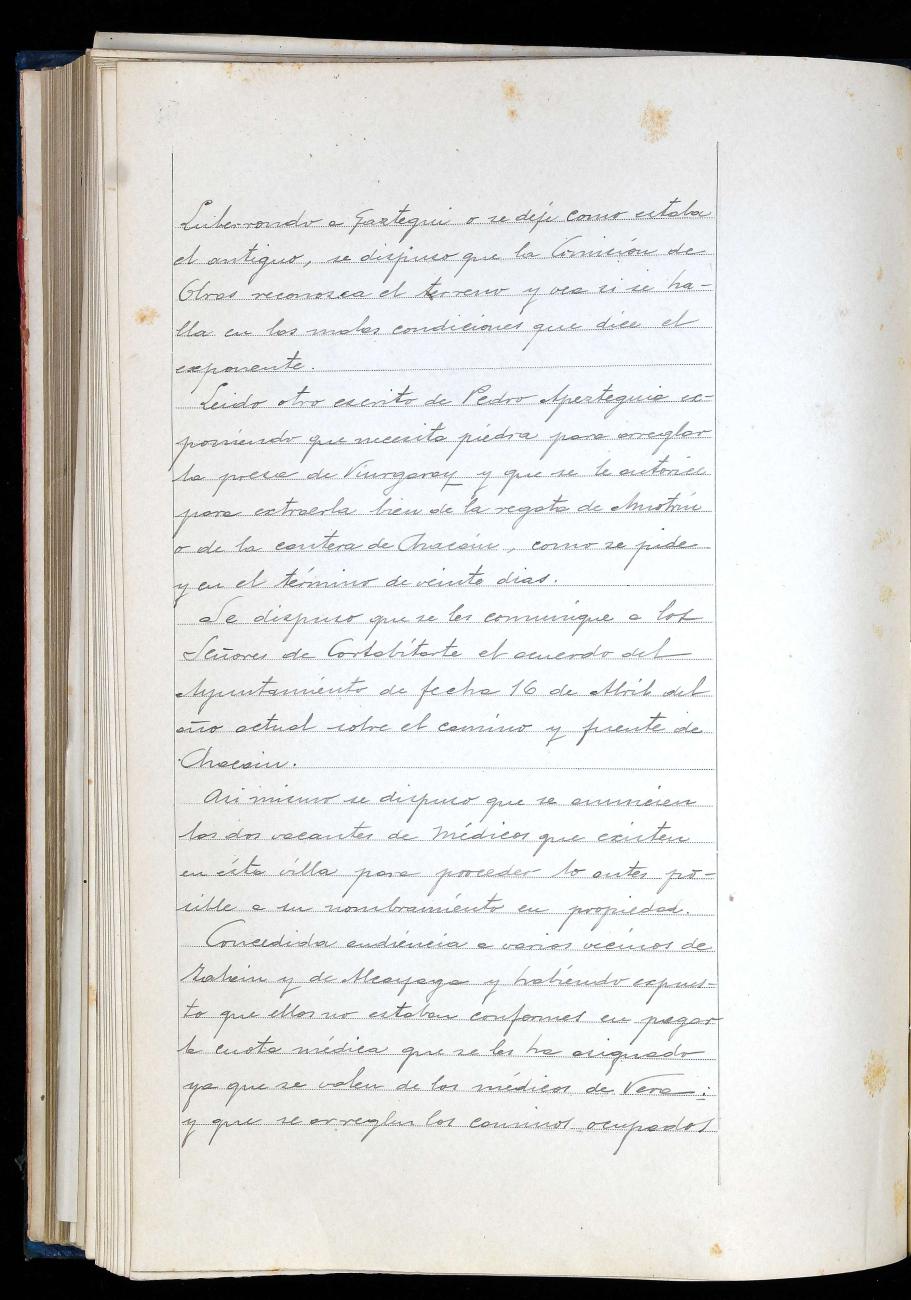 Luberrondo a Gaztegui o se deje como estaba
el antiguo, se dispuso que la Comisión de
Obras reconozca el terreno y vea si se ha-
lla en las malas condiciones que dice el
exponente.
Leido otro escrito de Pedro Apezteguia ex-
poniendo que necesita piedra para arreglar
la presa de Viurgaray y que se le autorice
para extraerla bien de la regata de
o de la cantera de Chacain, como se pide
y en el término de veinte dias.
Se dispuso que se les comunique a los
Señores de Cortabitarte el acuerdo del
Ayuntamiento de fecha 16 de Abril del
año actual sobre el camino y fuente de
Chacain.
Asi mismo se dispuso que se anuncien
las dos vacantes de Médicos que existen
en ésta villa para proceder lo antes po-
sible a su nombramiento en propiedad.
Concedida audiencia a varios vecinos de
Zalain y de Alcayaga y habiendo expues-
to que ellos no estaban conformes en pagar
la cuota médica que se les ha asignado
ya que se valen de los médicos de Vera;
y que se arreglen los caminos ocupados